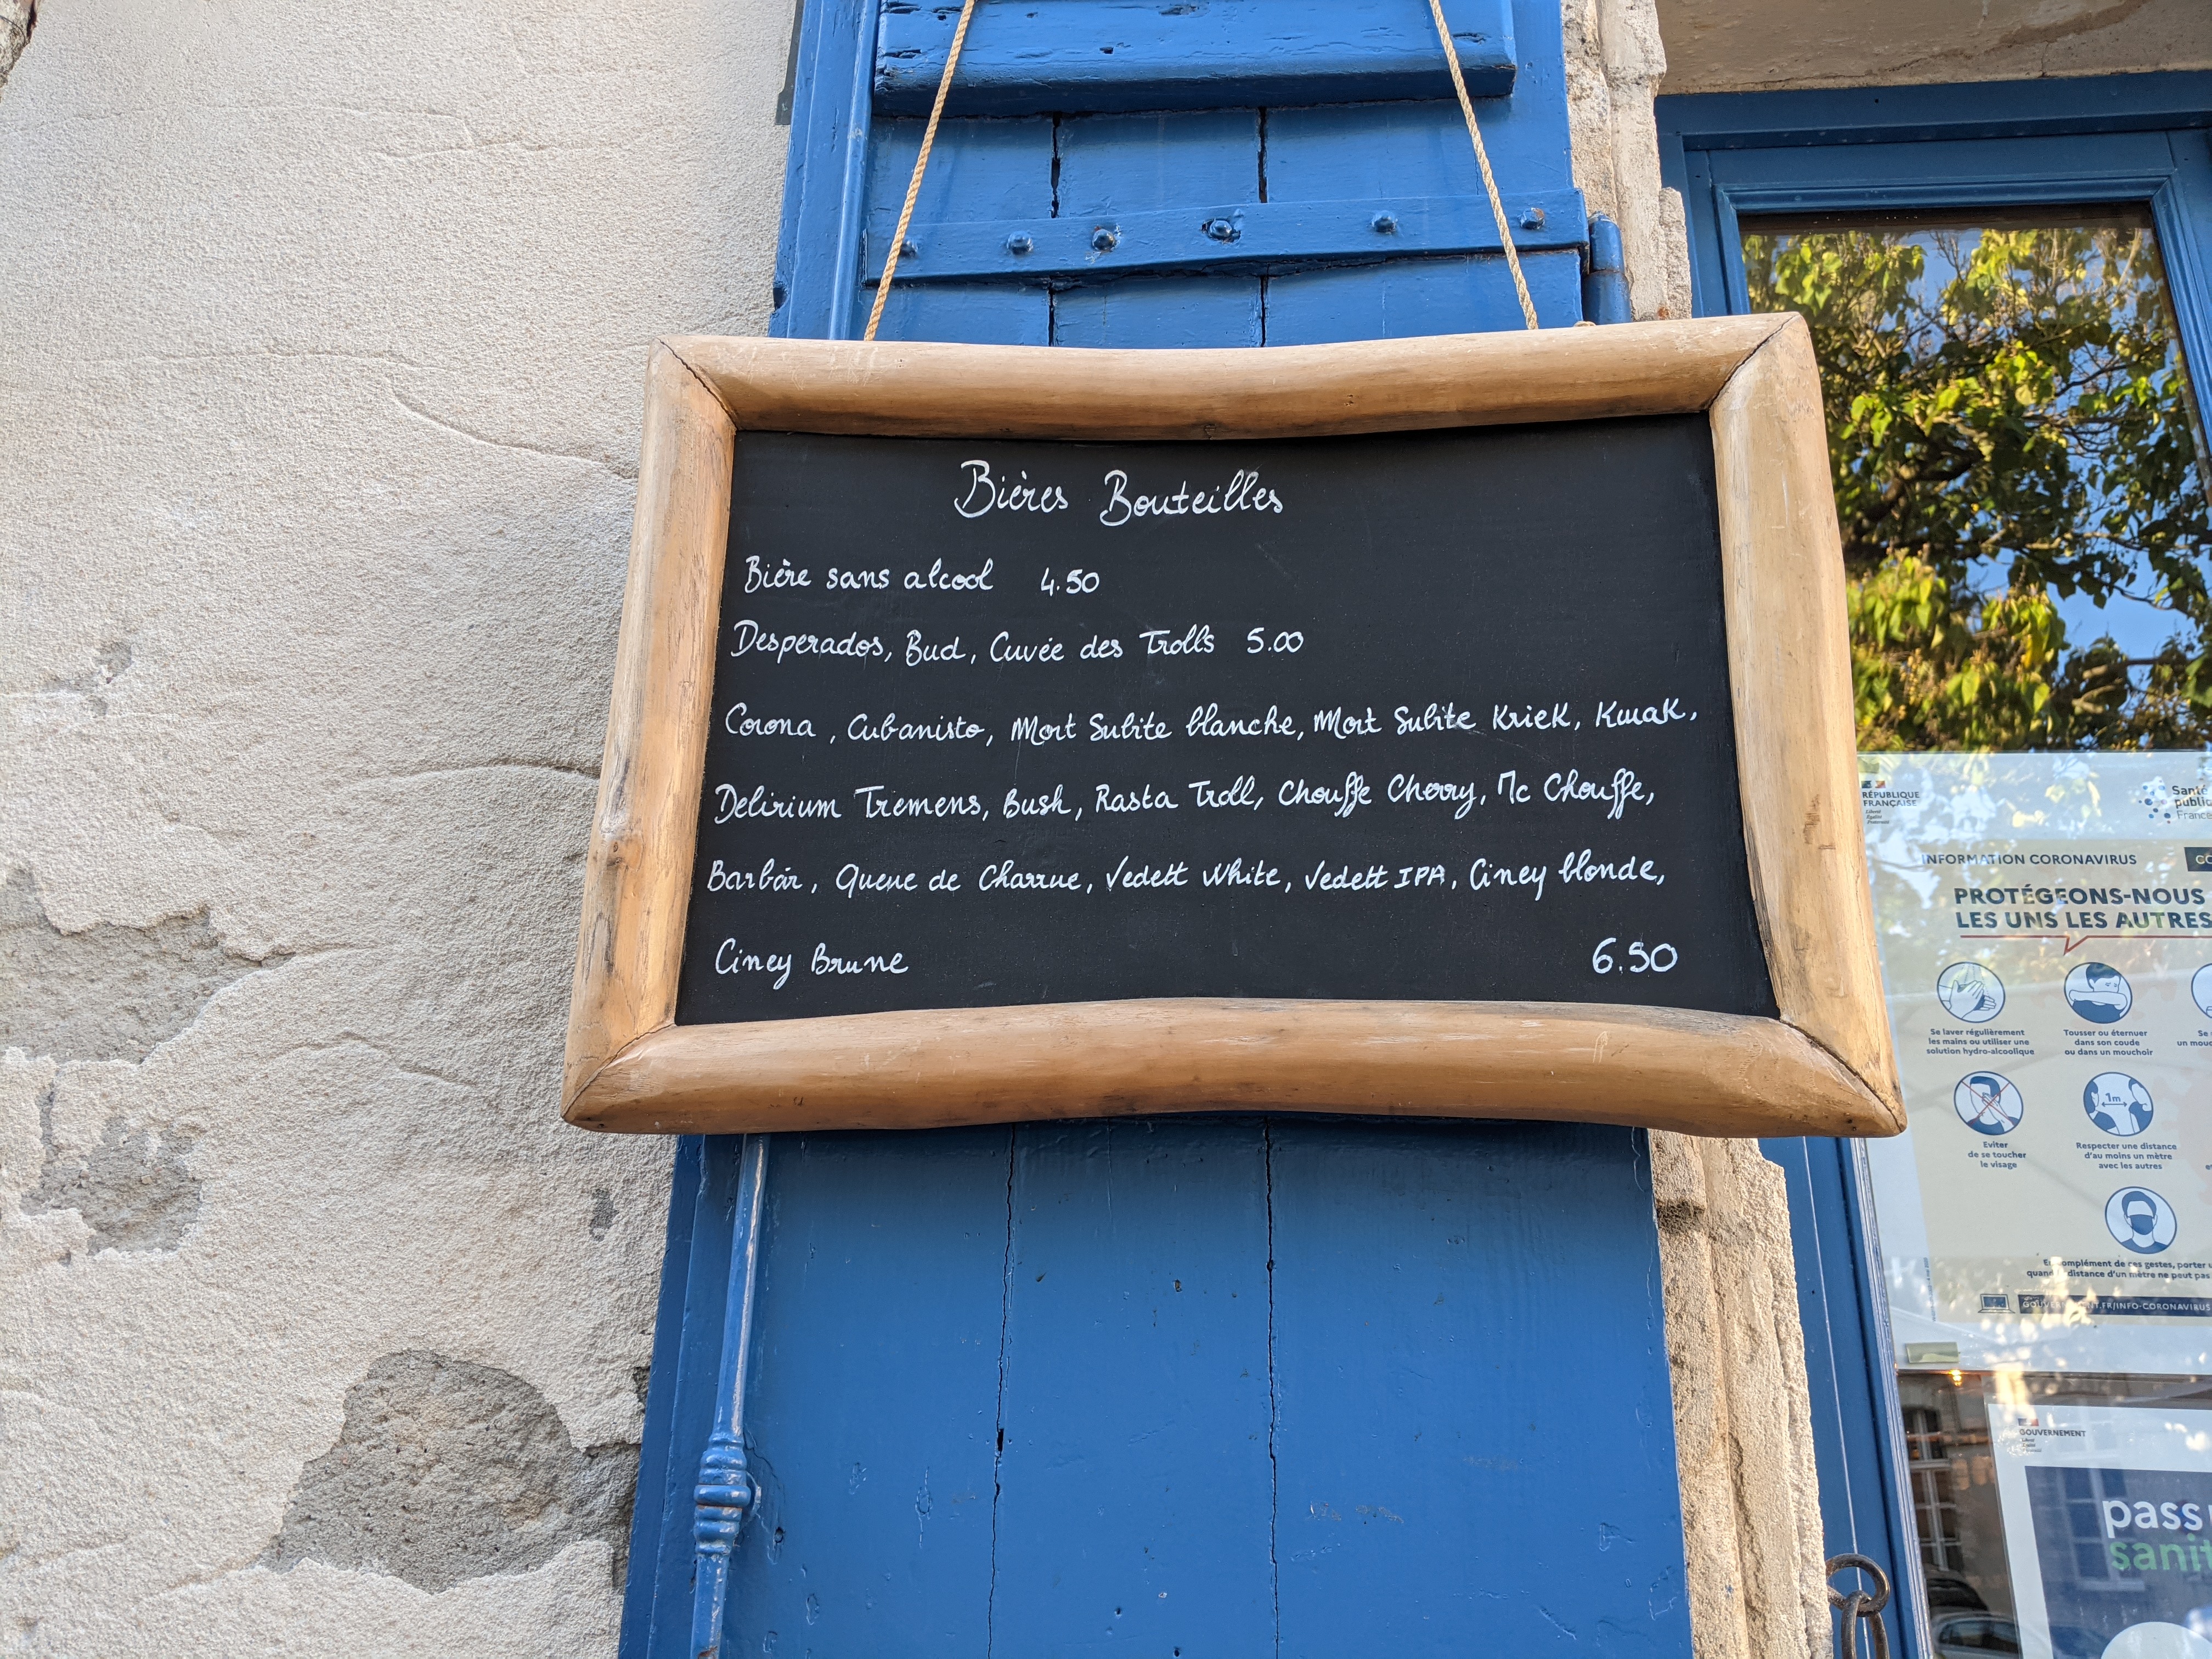 Bières Bouteilles
Bière sans alcool 4.50
Desperados, Bud, Cuvée des Trolls 5.00
Corona, Cubanisto, Mort Subite blanche, Mort Subite Kriek, Kwak,
Delirium Tremens, Bush, Rasta Troll, Chouffe Cherry, Mc Chouffe,
Barbãr, Queue de Charrue, Vedett White, Vedett IPA, Ciney blonde,
Ciney Brune 6.50
RÉPUBLIQUE
FRANÇAISE
Santé
publiq
France
INFORMATION CORONAVIRUS
PROTÉGEONS-NOUS
LES UNS LES AUTRES
Se laver régulièrement
les mains ou utiliser une
solution hydro-alcoolique
Tousser ou éternuer
dans son coude
ou dans un mouchoir
Se
un mouc
Eviter
de se toucher
le visage
1m
Respecter une distance
d'au moins un mètre
avec les autres
En complément de ces gestes, porter
quand distance d'un mètre ne peut pas
GOUVERNEMENT.FR/INFO-CORONAVIRUS
GOUVERNEMENT
pass
sanit